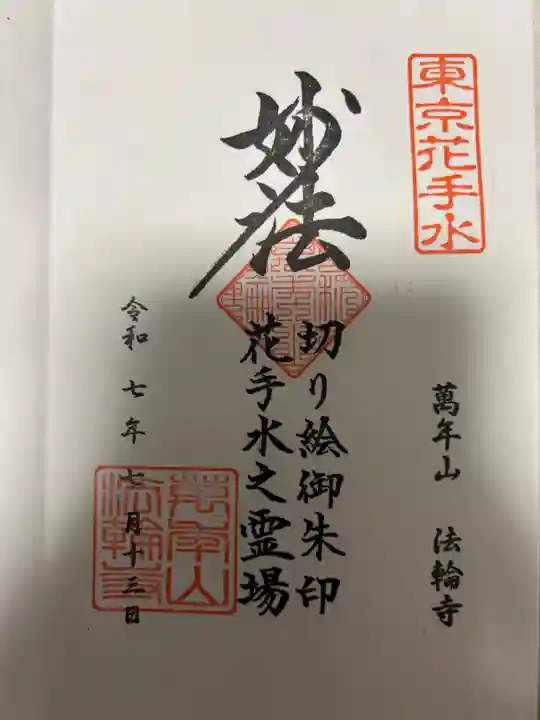 東京花手水
萬年山 法輪寺
妙法
切り絵御朱印
花手水之霊場
令和 七年 七月十三日
萬年山
法輪寺